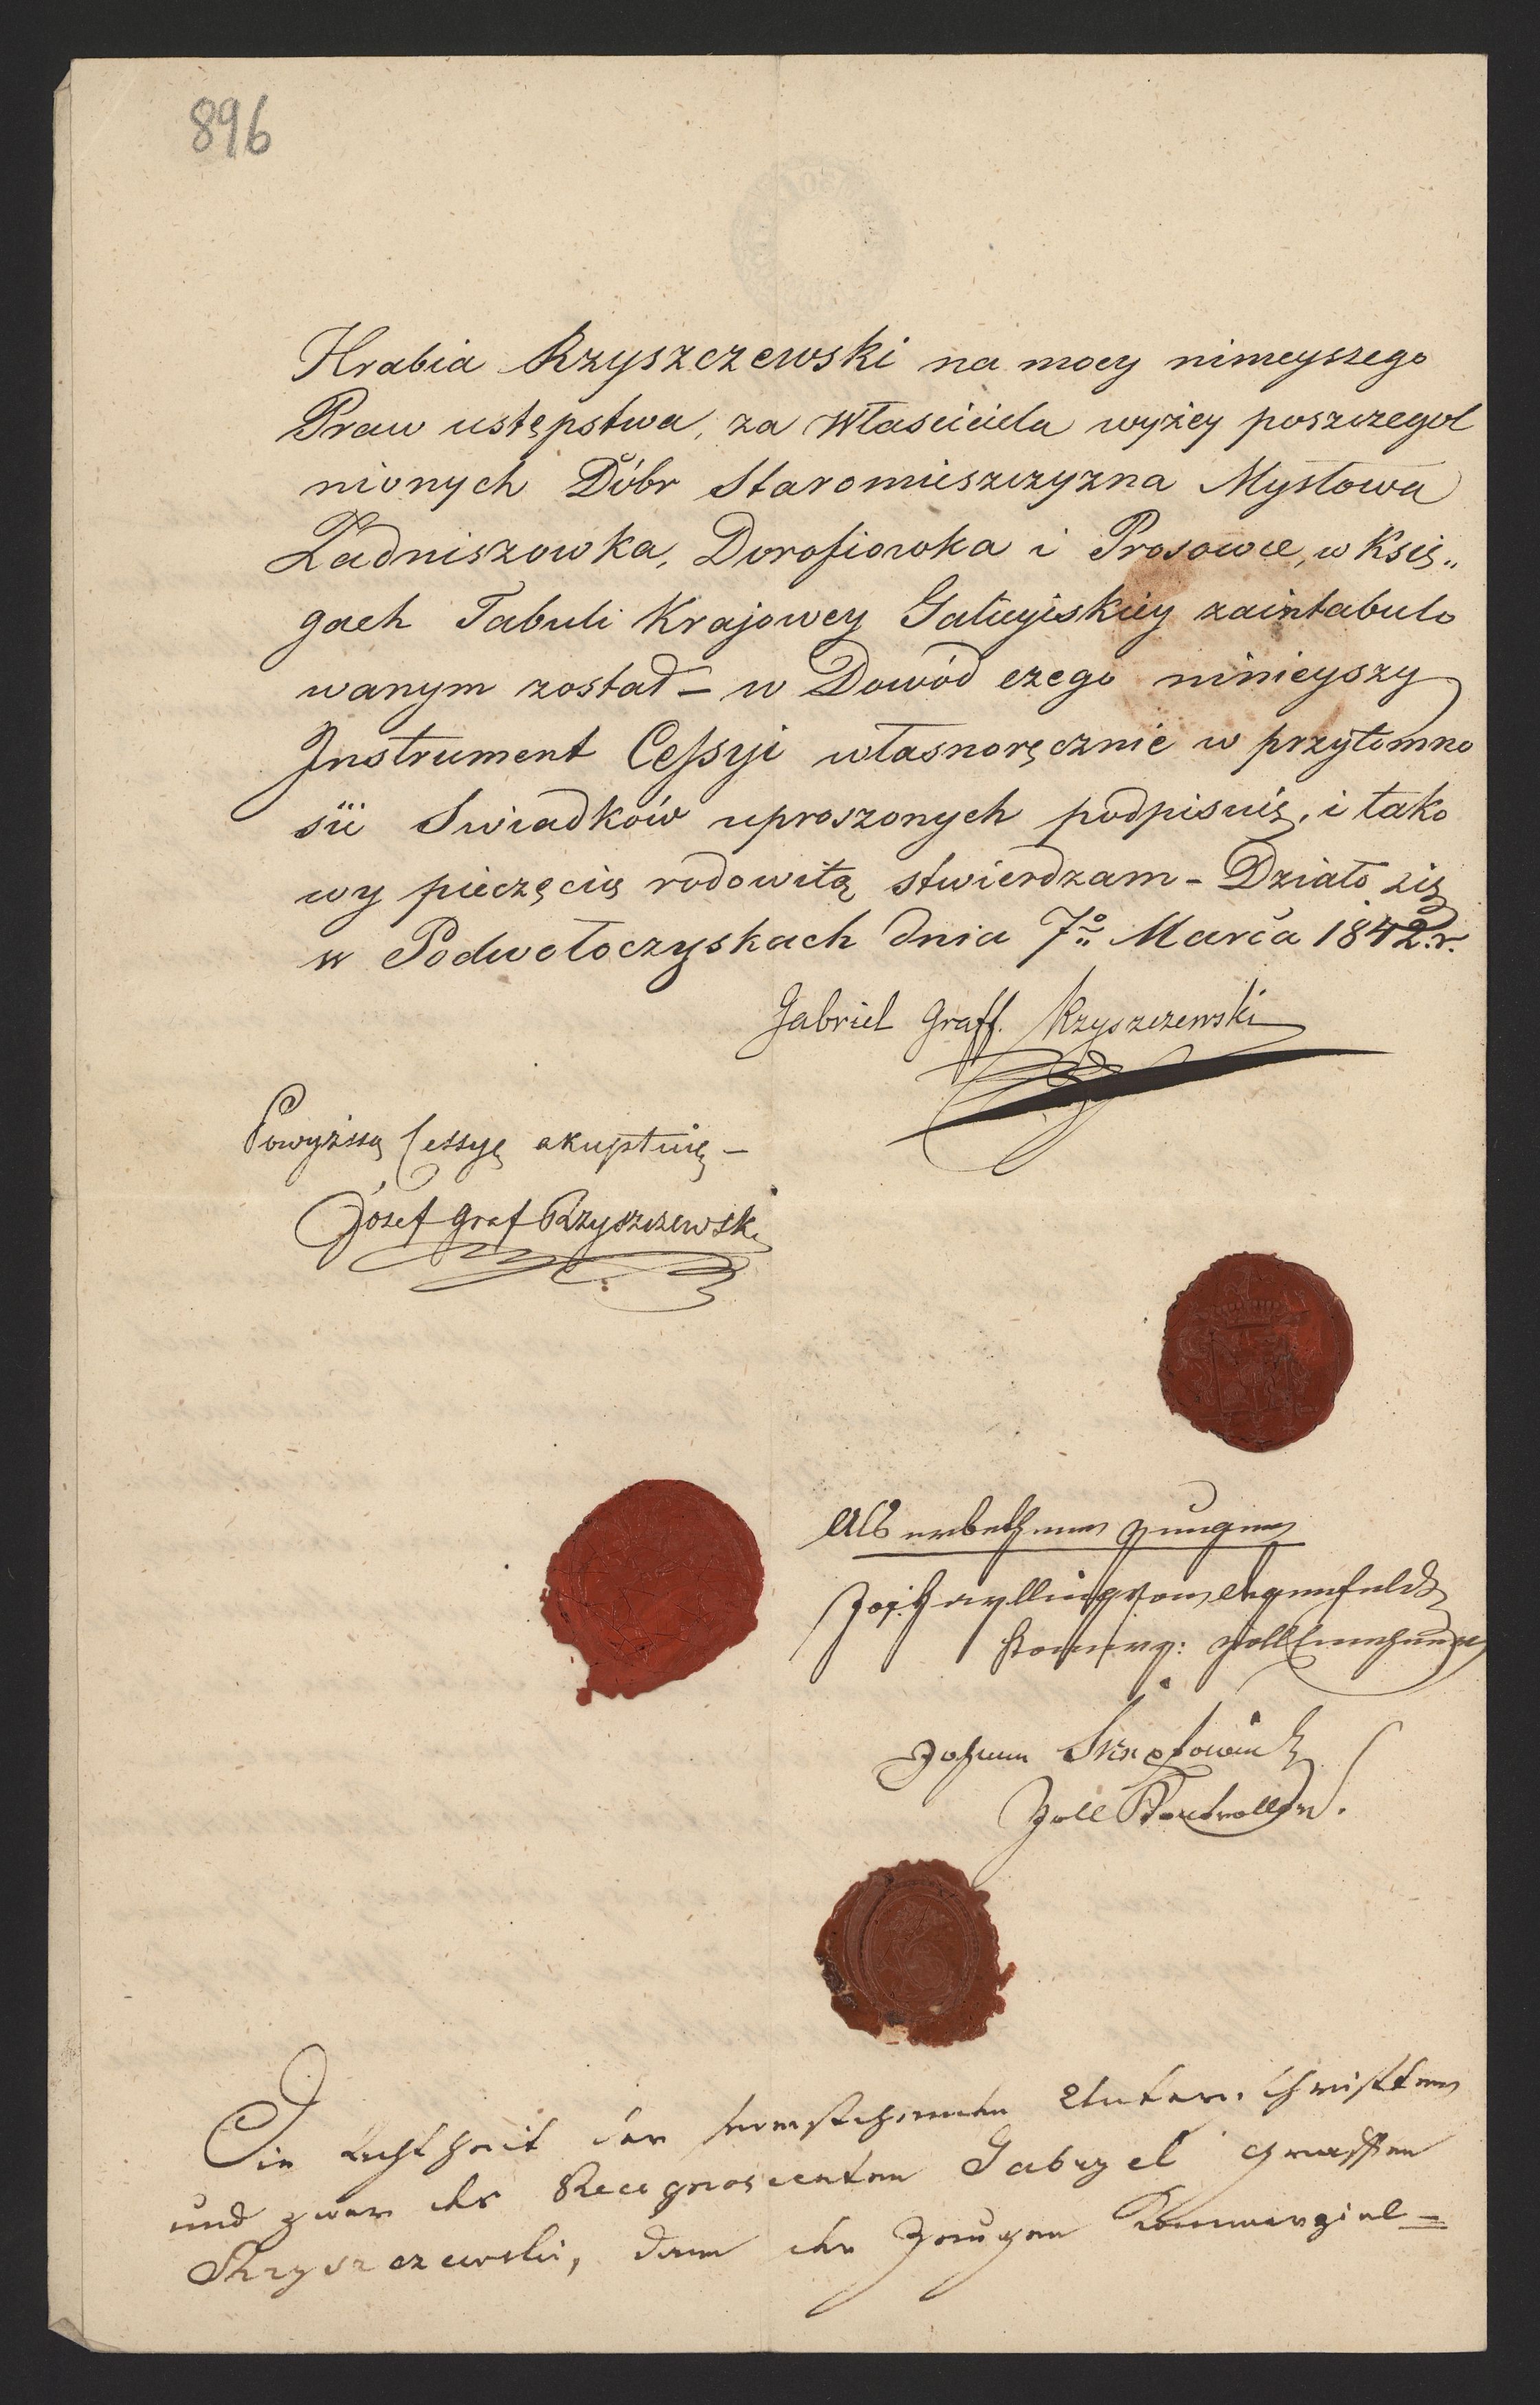 896
Hrabia Rzyszczewski na mocy ninieyszego
Praw ustępstwa, za Własciciela wyżey poszczegol
nionych Dóbr Staromieszczyzna Mysłowa
Ładniszowka, Dorofiowka i Prosowce, w Księ„
gach Tabuli Krajowey Galicyiskiey zaintabulo
wanym został – w Dowód czego ninieyszy
Instrument Cessyi własnoręcznie w przytomno
sci Swiadków uproszonych podpisuię, i tako
wy pieczęcią rodowitą stwierdzam – Działo się
w Podwołoczyskach dnia 7o Marca 1842.r.
Gabriel Graff. Rzyszczewski
Powyższą Cessyę akceptuię –
Józef Graf Rzyszczewski
Als erbethener Zeugen
Zoll Einnehmer
Johann
Zoll Kontrollor.
Die Echtheit der vorstehenden Unterschriften
und zwar des Recognoscenten Gabryel Graffen
Rzyszczewski, dann der Zeugen Kommerzial=